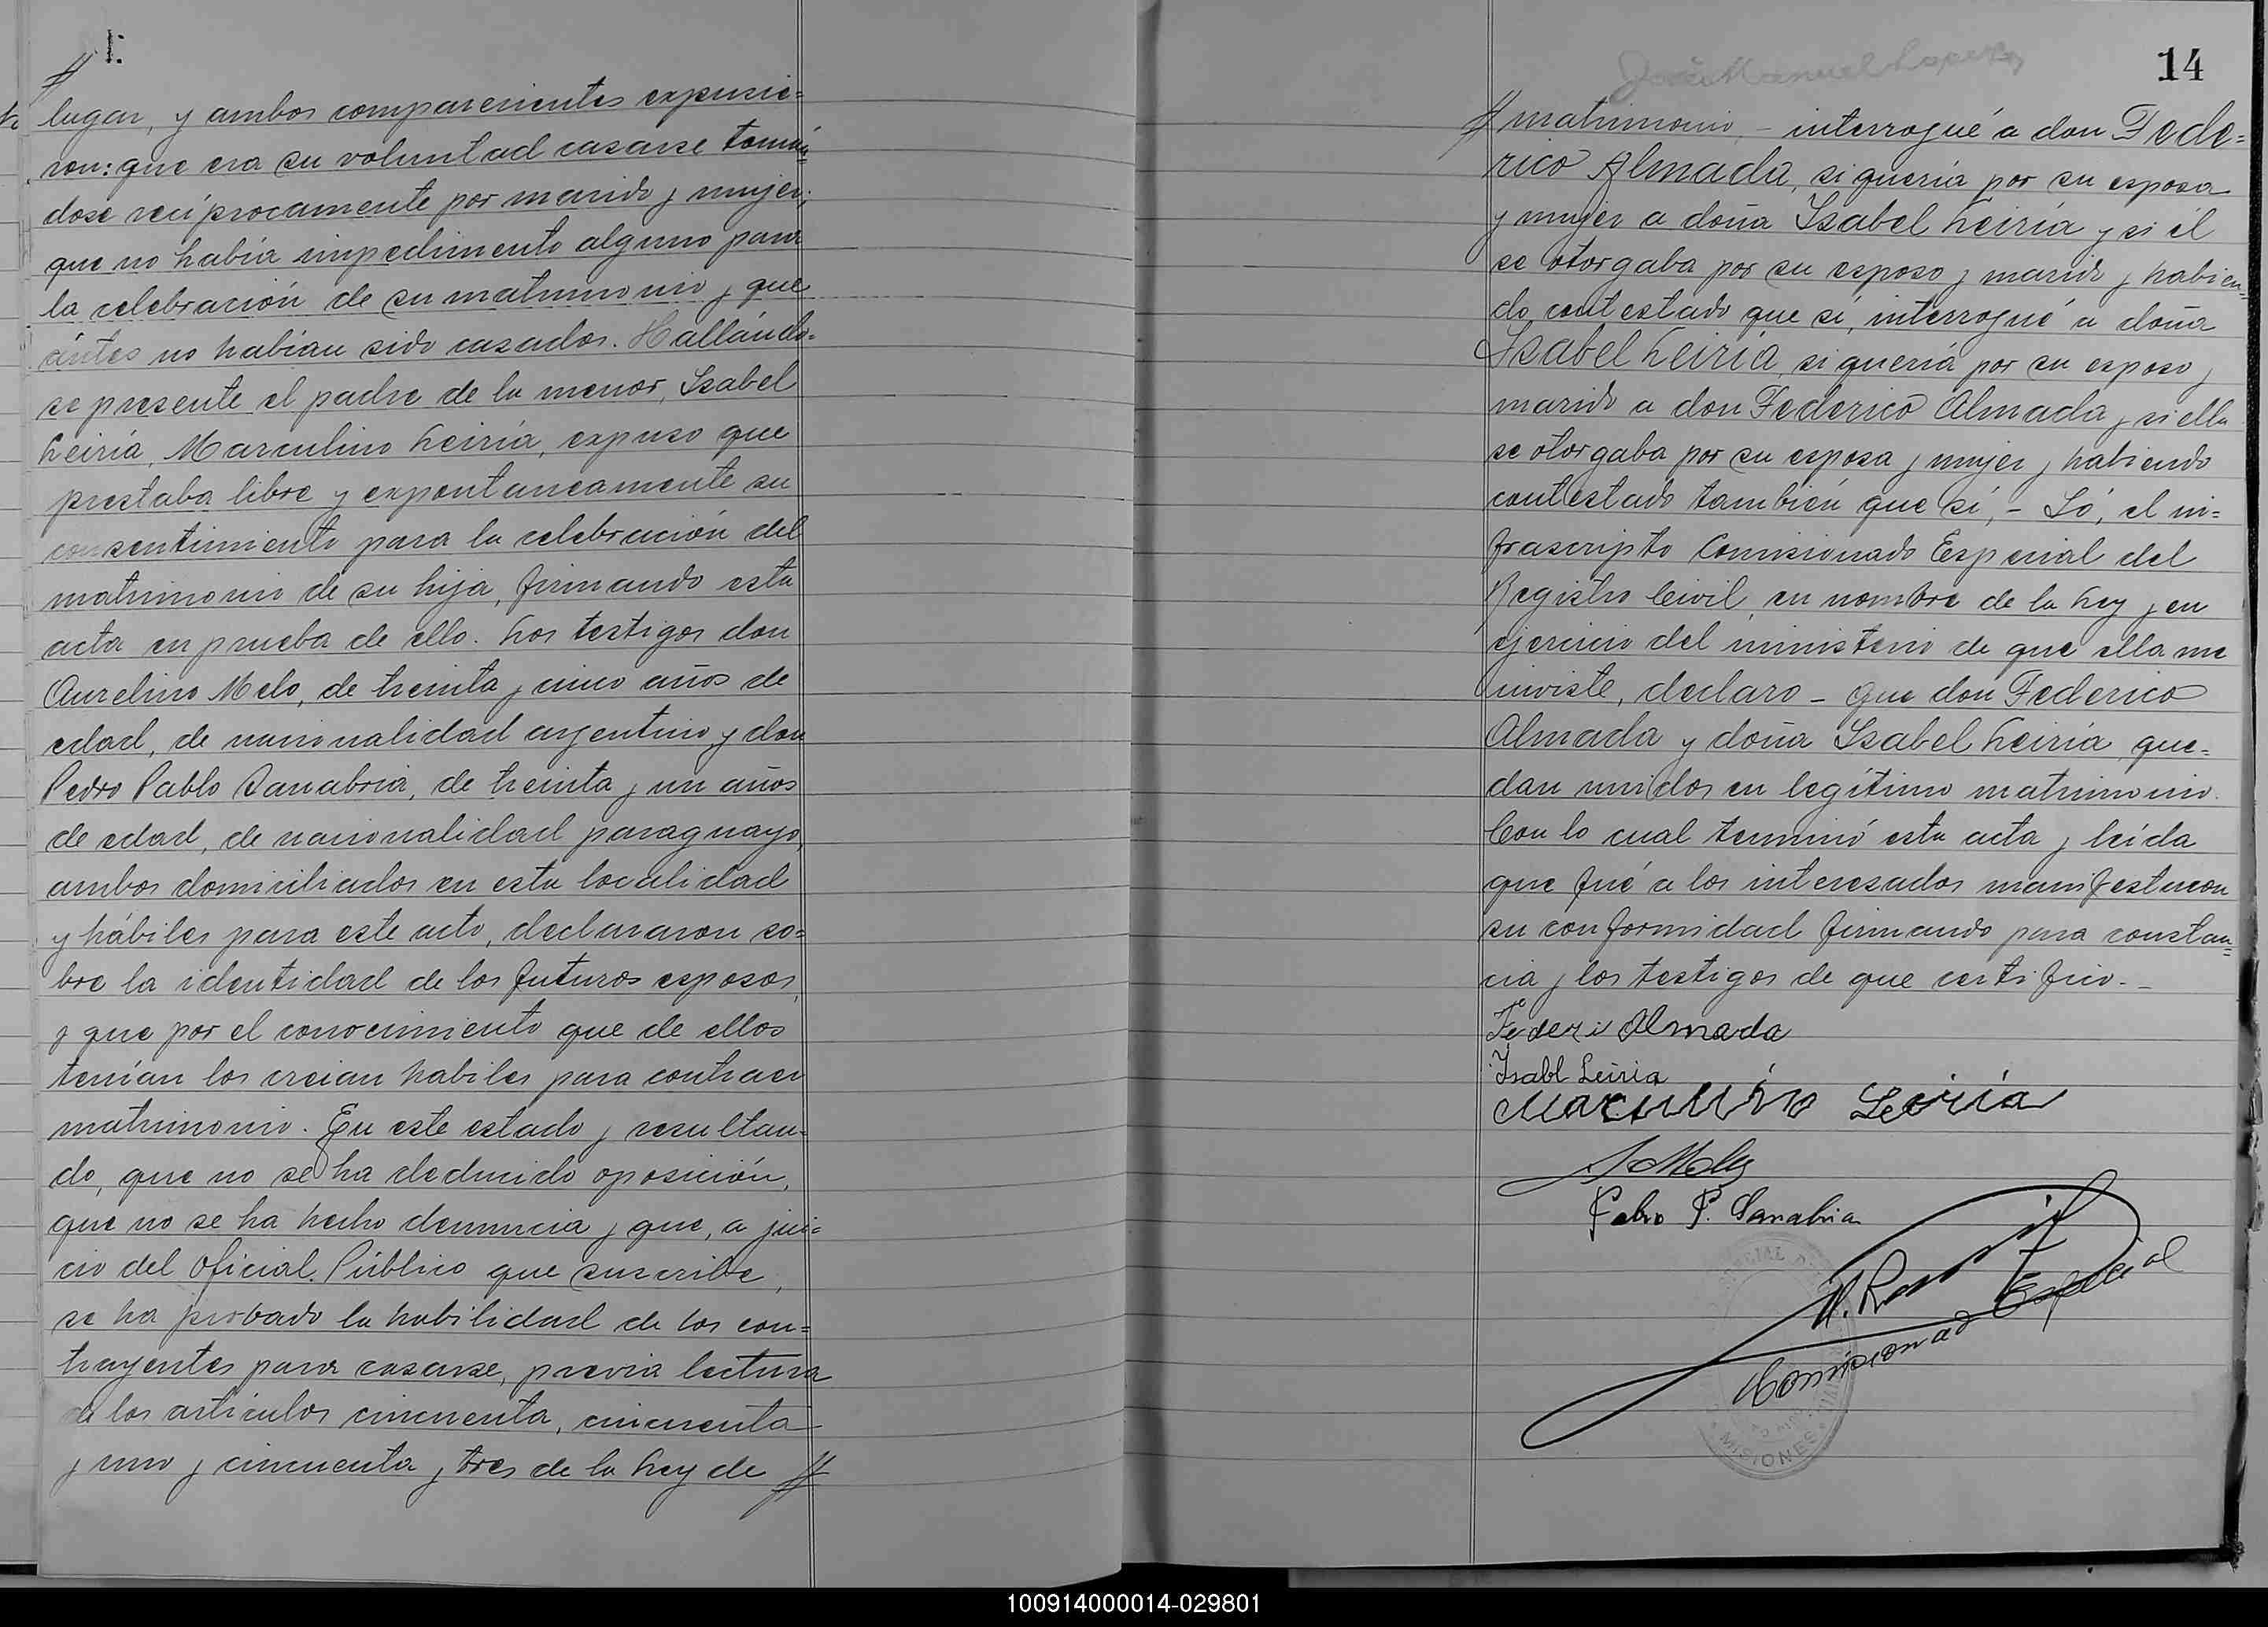 lugar, y ambos comparecientes expusie=
ron: que era su voluntad casarse tomán
dose recíprocamente por marido y mujer;
que no había impedimento alguno para
la celebración de su matrimonio y que
ántes no habían sido casados. Hallándo-
se presente el padre de la menor, Isabel
Leiría, Marculino Leiría, expuso que
prestaba libre y expontaneamente su
consentimiento para la celebración del
matrimonio de su hija, firmando esta
acta en prueba de ello. Los testigos don
Aurelino Melo, de treinta y cinco años de
edad, de nacionalidad argentino y don
Pedro Pablo Sanabria, de treinta y un años
de edad, de nacionalidad paraguayo,
ambos domiciliados en esta localidad
y hábiles para este acto, declararon so=
bre la identidad de los futuros esposos,
y que por el conocimiento que de ellos
tenían los creian habiles para contraer
matrimonio. En este estado y resultan-
do, que no se ha deducido oposición,
que no se ha hecho denuncia y que, a jui=
cio del Oficial Público que suscribe,
se ha probado la habilidad de los con=
trayentes para casarse, previa lectura
de los artículos cincuenta, cincuenta
y uno y cincuenta y tres de la Ley de #
José Manuel
14
# matrimonio, - interrogué a don Fede=
rico Almada, si quería por su esposa
y mujer a doña Isabel Leiría y si él
se otorgaba por su esposo y marido y habien=
do contestado que sí, interrogué a doña
Isabel Leiría, si quería por su esposo y
marido a don Federico Almada y si ella
se otorgaba por su esposa y mujer y habiendo
contestado también que sí, - Yó, el in=
frascripto Comisionado Especial del
Registro Civil, en nombre de la Ley y en
ejercicio del ministerio de que ella me
inviste, declaro - Que don Federico
Almada y doña Isabel Leiría, que=
dan unidos en legítimo matrimonio.
Con lo cual terminó esta acta y leída
que fué a los interesados manifestaron
su conformidad firmando para constan=
cia y los testigos de que certifico. -
Federi Almada
Isabl Leiria
Marculino Leiría
Pebro P. Sanabria
Comisionado Especial
MISIONES
100914000014-029801